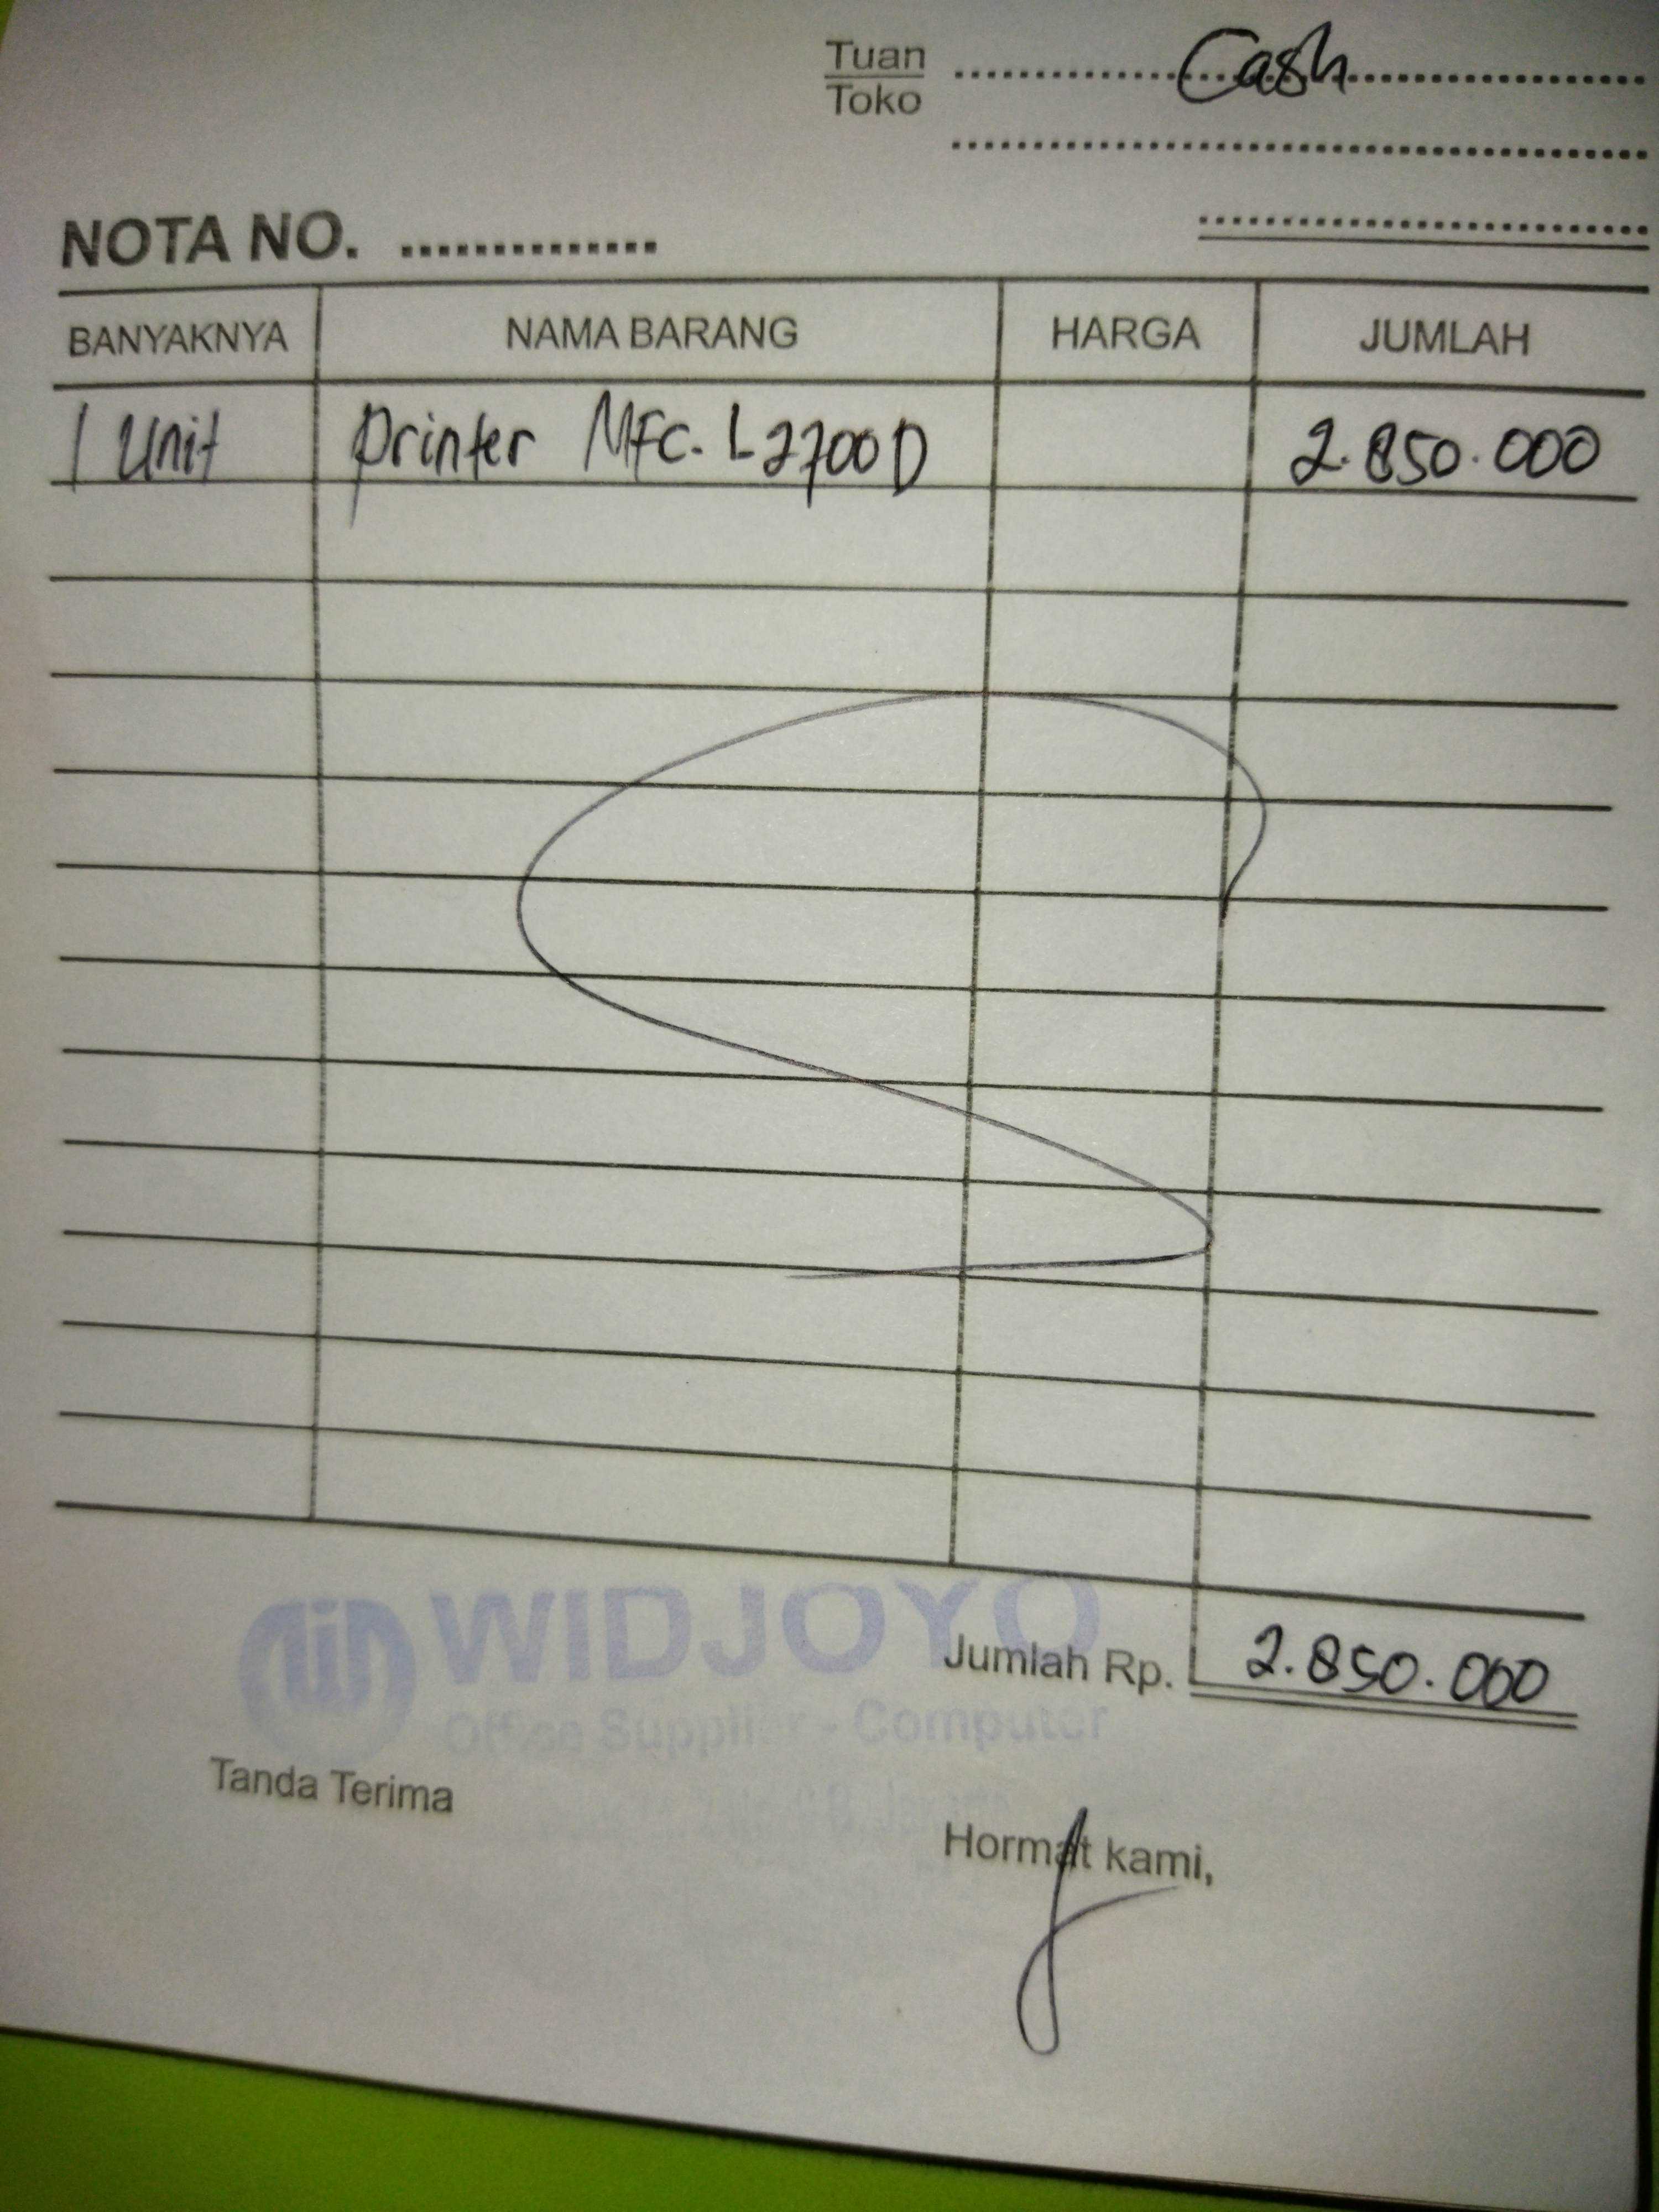 Tuan
Toko
Cash
NOTA NO. ..............
BANYAKNYA NAMA BARANG HARGA JUMLAH
1 Unit Printer MFC. L2700D 2.850.000
WIDJOYO
Jumlah Rp. 2.850.000
Office Supplier - Computer
Tanda Terima
Hormat kami,